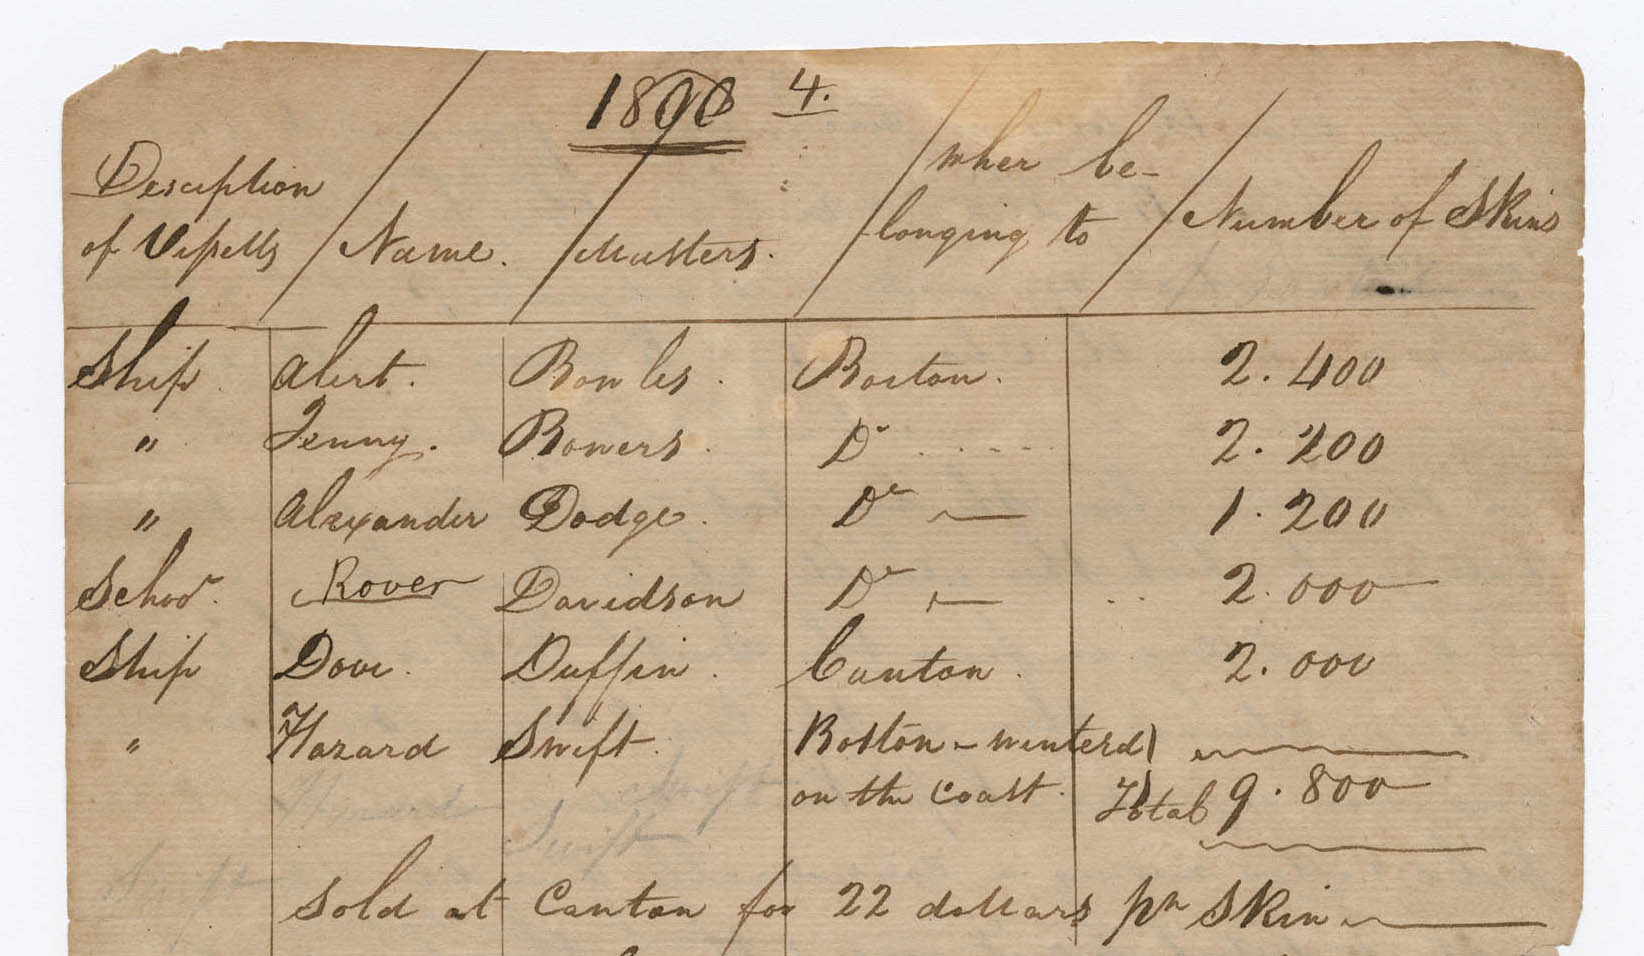 1800 4.
Desciption of Vessells / Name. / Masters. / wher be-longing to / Number of Skins
Ship Alert. Bowles. Boston. 2.400
" Jenny. Bowers. Do 2.200
" Alexander Dodge. Do 1.200
Schor. Rover Davidson Do 2.000
Ship Dove. Duffin. Canton. 2.000
" Hazard Swift. Boston - winterd
on the coast. Total 9.800
Hazard Swift
Swift
Swift
Sold at Canton for 22 dollars pr Skin